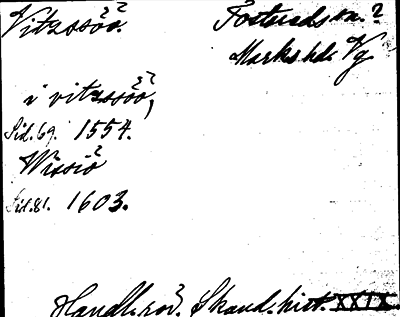 Vitassöö. Fostuads sn. ?
Marks hd. Vg
i vitassöö,
Sid. 69. 1554.
Wissiö
Sid. 81. 1603.
Handl. rör. Skand. hist. XXIX.